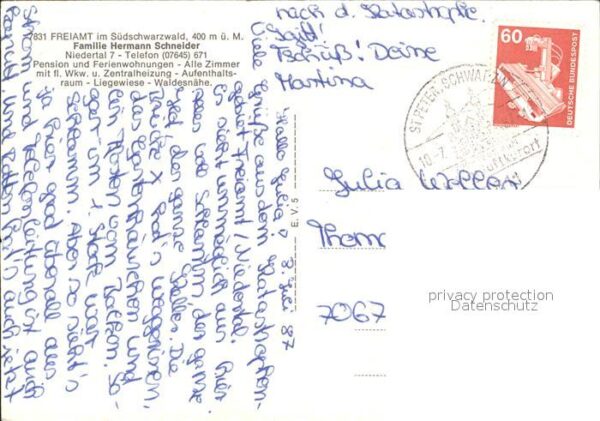 7831 FREIAMT im Südschwarzwald, 400 m ü. M.
Familie Hermann Schneider
Niedertal 7 - Telefon (07645) 671
Pension und Ferienwohnungen - Alle Zimmer
mit fl. Wkw. u. Zentralheizung - Aufenthalts-
raum - Liegewiese - Waldesnähe
E. V. 5
Hallo Julia! 8. Juli 87
Viele Grüße aus dem Katastrophen-
gebiet Freiamt/Niedertal.
Es sieht unmöglich aus. Hier
alles voll Schlamm der ganze
Hof, der ganze Keller. Die
Brücke
das Gartenhäuschen und
ein Meter vom Balkon. So-
gar im 1. Stock war
Schlamm. Aber so sieht's
ja hier grad überall aus
Strom und Telefonleitung ist auch
kaputt und Radon hat's auch jetzt
nach d. Katastrophe.
Gut!
Tschüß! Deine
Martina
60
DEUTSCHE BUNDESPOST
ST PETER, SCHWARZW
10.-7.
Luftkurort
Julia
Thom
7067
privacy protection
Datenschutz